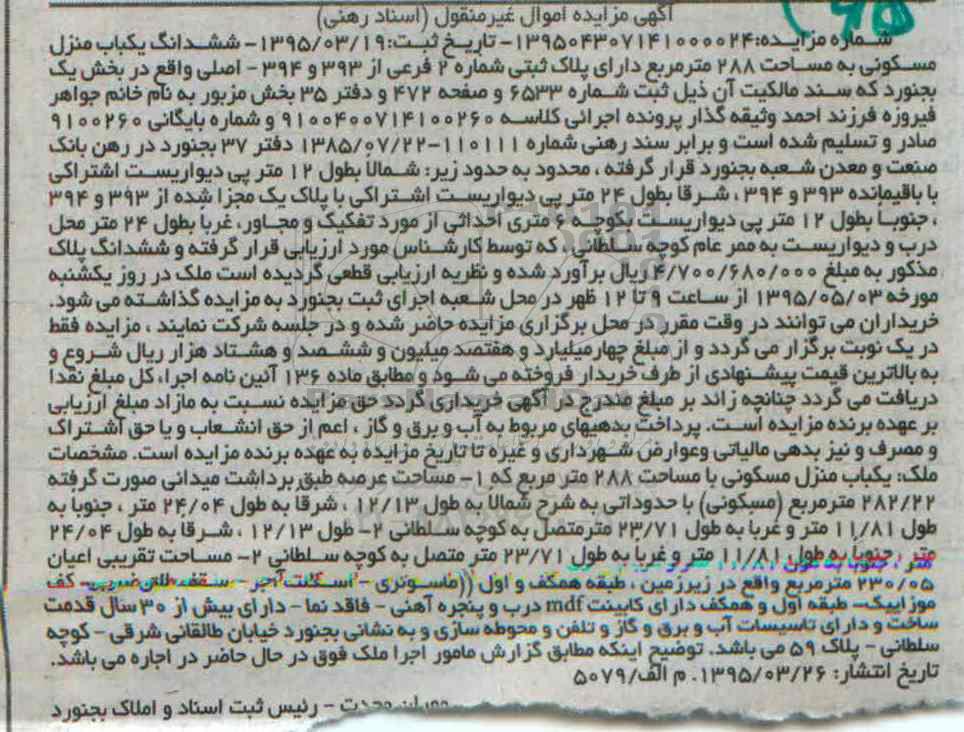 آگهی مزایده اموال غیرمنقول (اسناد رهنی)
شماره مزایده:۱۳۹۵۰۴۳۰۷۱۴۱۰۰۰۰۲۴- تاریخ ثبت:۱۳۹۵/۰۳/۱۹- ششدانگ یکباب منزل
مسکونی به مساحت ۲۸۸ مترمربع دارای پلاک ثبتی شماره ۲ فرعی از ۳۹۳ و ۳۹۴ - اصلی واقع در بخش یک
بجنورد که سند مالکیت آن ذیل ثبت شماره ۶۵۳۳ و صفحه ۴۷۲ و دفتر ۳۵ بخش مزبور به نام خانم جواهر
فیروزه فرزند احمد وثیقه گذار پرونده اجرائی کلاسه ۹۱۰۰۴۰۰۷۱۴۱۰۰۲۶۰ و شماره بایگانی ۹۱۰۰۲۶۰
صادر و تسلیم شده است و برابر سند رهنی شماره ۱۱۰۱۱۱-۱۳۸۵/۰۷/۲۲ دفتر ۳۷ بجنورد در رهن بانک
صنعت و معدن شعبه بجنورد قرار گرفته ، محدود به حدود زیر: شمالا بطول ۱۲ متر پی دیواریست اشتراکی
با باقیمانده ۳۹۳ و ۳۹۴ ، شرقا بطول ۲۴ متر پی دیواریست اشتراکی با پلاک یک مجزا شده از ۳۹۳ و ۳۹۴
، جنوبا بطول ۱۲ متر پی دیواریست بکوچه متری احداثی از مورد تفکیک و مجاور، غربا بطول ۲۴ متر محل
درب و دیواریست به ممر عام کوچه سلطانی ، که توسط کارشناس مورد ارزیابی قرار گرفته و ششدانگ پلاک
مذکور به مبلغ ۴/۷۰۰/۶۸۰/۰۰۰ ریال برآورد شده و نظریه ارزیابی قطعی گردیده است ملک در روز یکشنبه
مورخه ۱۳۹۵/۰۵/۰۳ از ساعت ۹ تا ۱۲ ظهر در محل شعبه اجرای ثبت بجنورد به مزایده گذاشته می شود.
خریداران می توانند در وقت مقرر در محل برگزاری مزایده حاضر شده و در جلسه شرکت نمایند ، مزایده فقط
در یک نوبت برگزار می گردد و از مبلغ چهارمیلیارد و هفتصد میلیون و ششصد و هشتاد هزار ریال شروع و
به بالاترین قیمت پیشنهادی از طرف خریدار فروخته می شود و مطابق ماده ۱۳۶ آئین نامه اجرا، کل مبلغ نقدا
دریافت می گردد چنانچه زائد بر مبلغ مندرج در آگهی خریداری گردد حق مزایده نسبت به مازاد مبلغ ارزیابی
بر عهده برنده مزایده است. پرداخت بدهیهای مربوط به آب و برق و گاز ، اعم از حق انشعاب و یا حق اشتراک
و مصرف و نیز بدهی مالیاتی وعوارض شهرداری و غیره تا تاریخ مزایده به عهده برنده مزایده است. مشخصات
ملک: یکباب منزل مسکونی با مساحت ۲۸۸ متر مربع که ۱- مساحت عرصه طبق برداشت میدانی صورت گرفته
۲۸۲/۲۲ مترمربع (مسکونی) با حدوداتی به شرح شمالا به طول ۱۲/۱۳ ، شرقا به طول ۲۴/۰۴ متر ، جنوبا به
طول ۱۱/۸۱ متر و غربا به طول ۲۳/۷۱ مترمتصل به کوچه سلطانی ۲- طول ۱۲/۱۳ ، شرقا به طول ۲۴/۰۴
متر ، جنوبا به طول ۱۱/۸۱ متر و غربا به طول ۲۳/۷۱ متر متصل به کوچه سلطانی ۲- مساحت تقریبی اعیان
۲۳۰/۰۵ مترمربع واقع در زیرزمین ، طبقه همکف و اول ((ماسونری - اسکلت آجر - سقف طاق ضربی- کف
موزاییک- طبقه اول و همکف دارای کابینت mdf درب و پنجره آهنی - فاقد نما - دارای بیش از ۳۰ سال قدمت
ساخت و دارای تاسیسات آب و برق و گاز و تلفن و محوطه سازی و به نشانی بجنورد خیابان طالقانی شرقی - کوچه
سلطانی - پلاک ۵۹ می باشد. توضیح اینکه مطابق گزارش مامور اجرا ملک فوق در حال حاضر در اجاره می باشد.
تاریخ انتشار: ۱۳۹۵/۰۳/۲۶. م الف/۵۰۷۹
وحدت - رئیس ثبت اسناد و املاک بجنورد